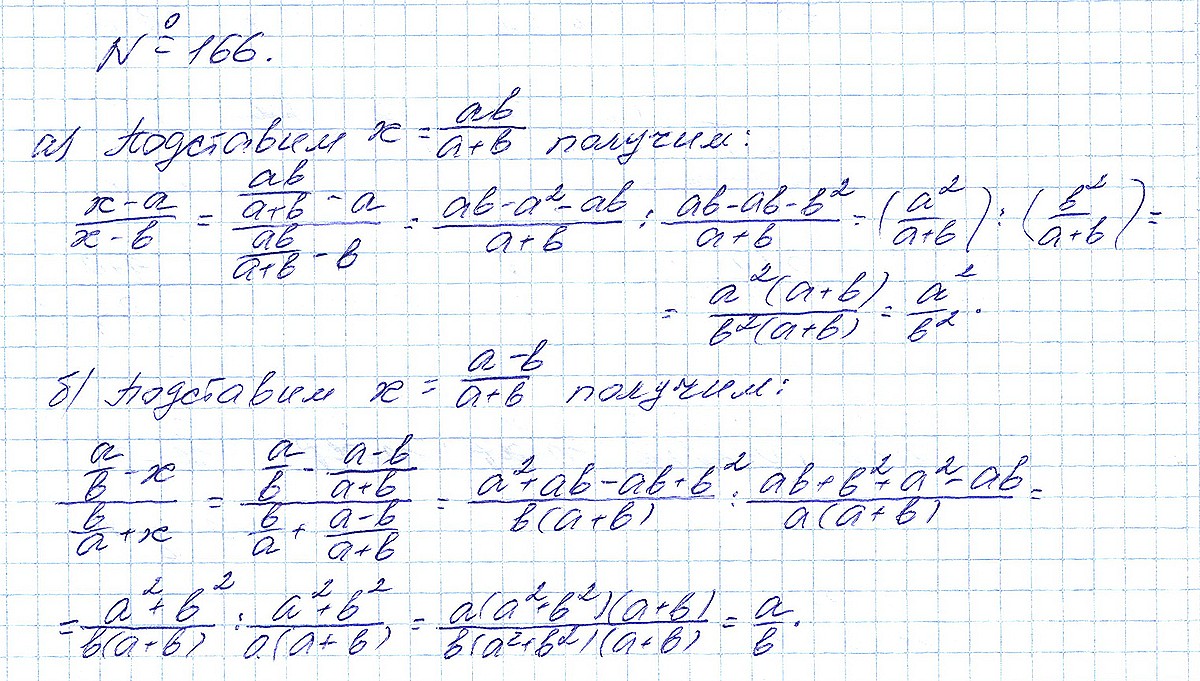 № 166.
а) Подставим x = ab/(a+b) получим:
(x-a)/(x-b) = (ab/(a+b) - a)/(ab/(a+b) - b) = (ab-a²-ab)/(a+b) : (ab-ab-b²)/(a+b) = (a²/(a+b)) : (b²/(a+b)) =
= a²(a+b)/b²(a+b) = a²/b².
б) Подставим x = (a-b)/(a+b) получим:
(a/b - x)/(b/a + x) = (a/b - (a-b)/(a+b))/(b/a + (a-b)/(a+b)) = (a²+ab-ab+b²)/b(a+b) : (ab+b²+a²-ab)/a(a+b) =
= (a²+b²)/b(a+b) : (a²+b²)/a(a+b) = a(a²+b²)(a+b)/b(a²+b²)(a+b) = a/b.